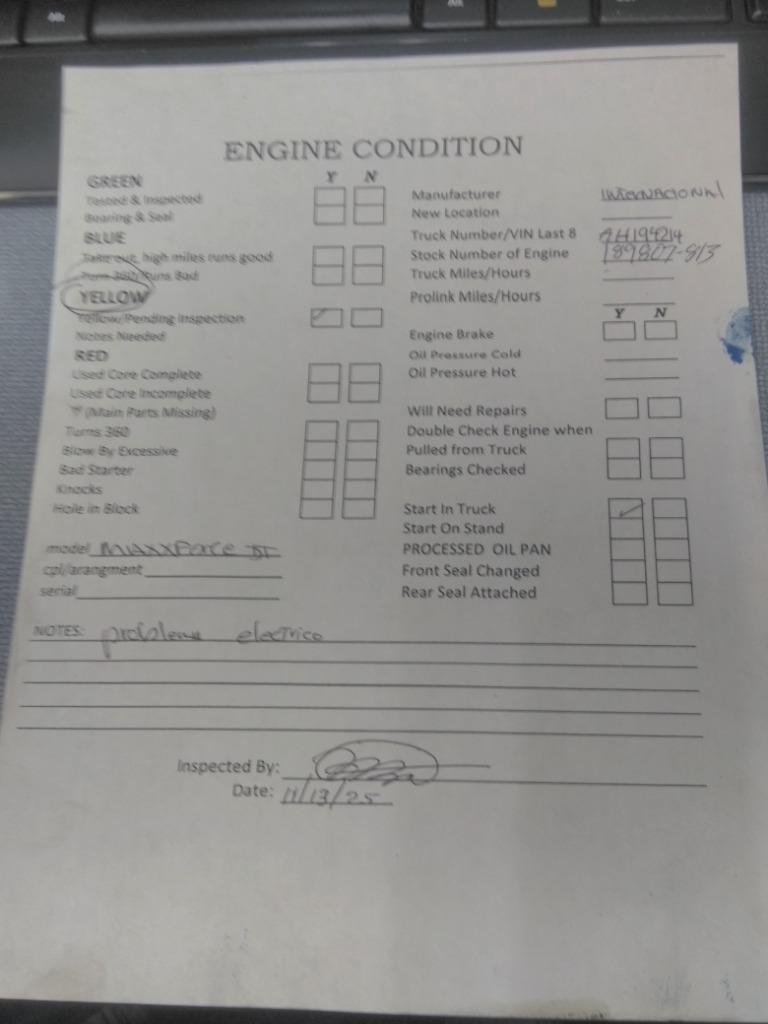 ENGINE CONDITION
Y N
GREEN
Tested & Inspected
Bearing & Seal
BLUE
Take out, high miles runs good
Turn 360/Runs Bad
YELLOW
Yellow/Pending Inspection
Notes Needed
RED
Used Core Complete
Used Core Incomplete
(Main Parts Missing)
Turns 360
Blow By Excessive
Bad Starter
Knocks
Hole in Block
model MAXXForce DT
cpl/arangment
serial
Manufacturer INTERNACIONAL
New Location
Truck Number/VIN Last 8 AH194214
Stock Number of Engine 189807-813
Truck Miles/Hours
Prolink Miles/Hours
Y N
Engine Brake
Oil Pressure Cold
Oil Pressure Hot
Will Need Repairs
Double Check Engine when
Pulled from Truck
Bearings Checked
Start In Truck
Start On Stand
PROCESSED OIL PAN
Front Seal Changed
Rear Seal Attached
NOTES: problema electrico
Inspected By:
Date: 11/13/25